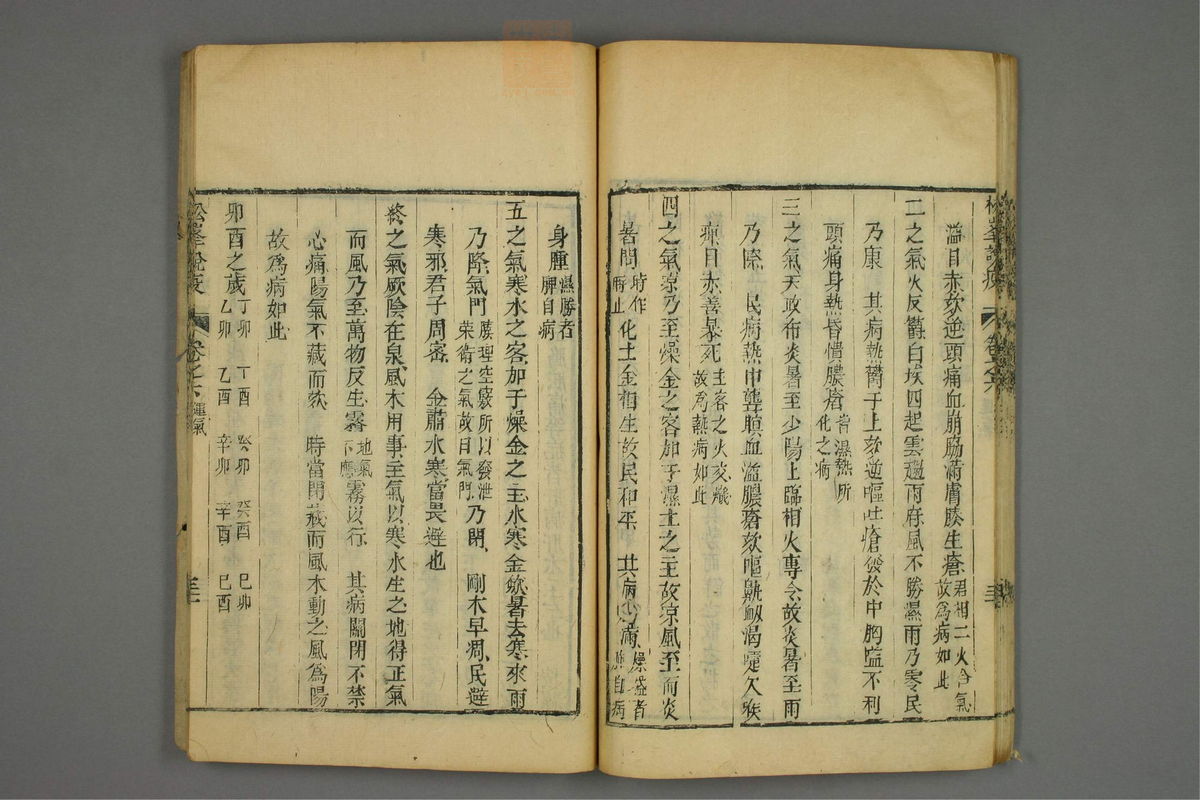 溢目赤欬逆頭痛血崩脇滿膚腠生瘡君相二火合氣故爲病如此
二之氣火反鬱白埃四起雲趨雨府風不勝濕雨乃零民
乃康　其病熱鬱于上欬逆嘔吐瘡發於中胸嗌不利
頭痛身熱昏憒膿瘡皆濕熱所化之病
三之氣天政布炎暑至少陽上臨相火專令故炎暑至雨
乃際　民病熱中聾瞑血溢膿瘡欬嘔鼽衄渴嚏欠喉
痹目赤善暴死主客之火交熾故爲熱病如此
四之氣凉乃至燥金之客加于濕土之主故凉風至而炎
暑間時作時止化土金相生故民和平　其病滿燥盛者肺自病
身腫濕勝者脾自病
五之氣寒水之客加于燥金之主水寒金歛暑去寒來雨
乃降氣門腠理空竅所以發泄榮衛之氣故曰氣門乃閉　剛木早凋民避
寒邪君子周密　金肅水寒當畏避也
終之氣厥陰在泉風木用事主氣以寒水生之地得正氣
而風乃至萬物反生霿地氣不應霧以行　其病關閉不禁
心痛陽氣不藏而欬　時當閉藏而風木動之風爲陽
故爲病如此
卯酉之歲丁卯　丁酉　癸卯　癸酉　己卯
乙卯　乙酉　辛卯　辛酉　己酉
松峯說疫　卷之六　運氣
松峯說疫